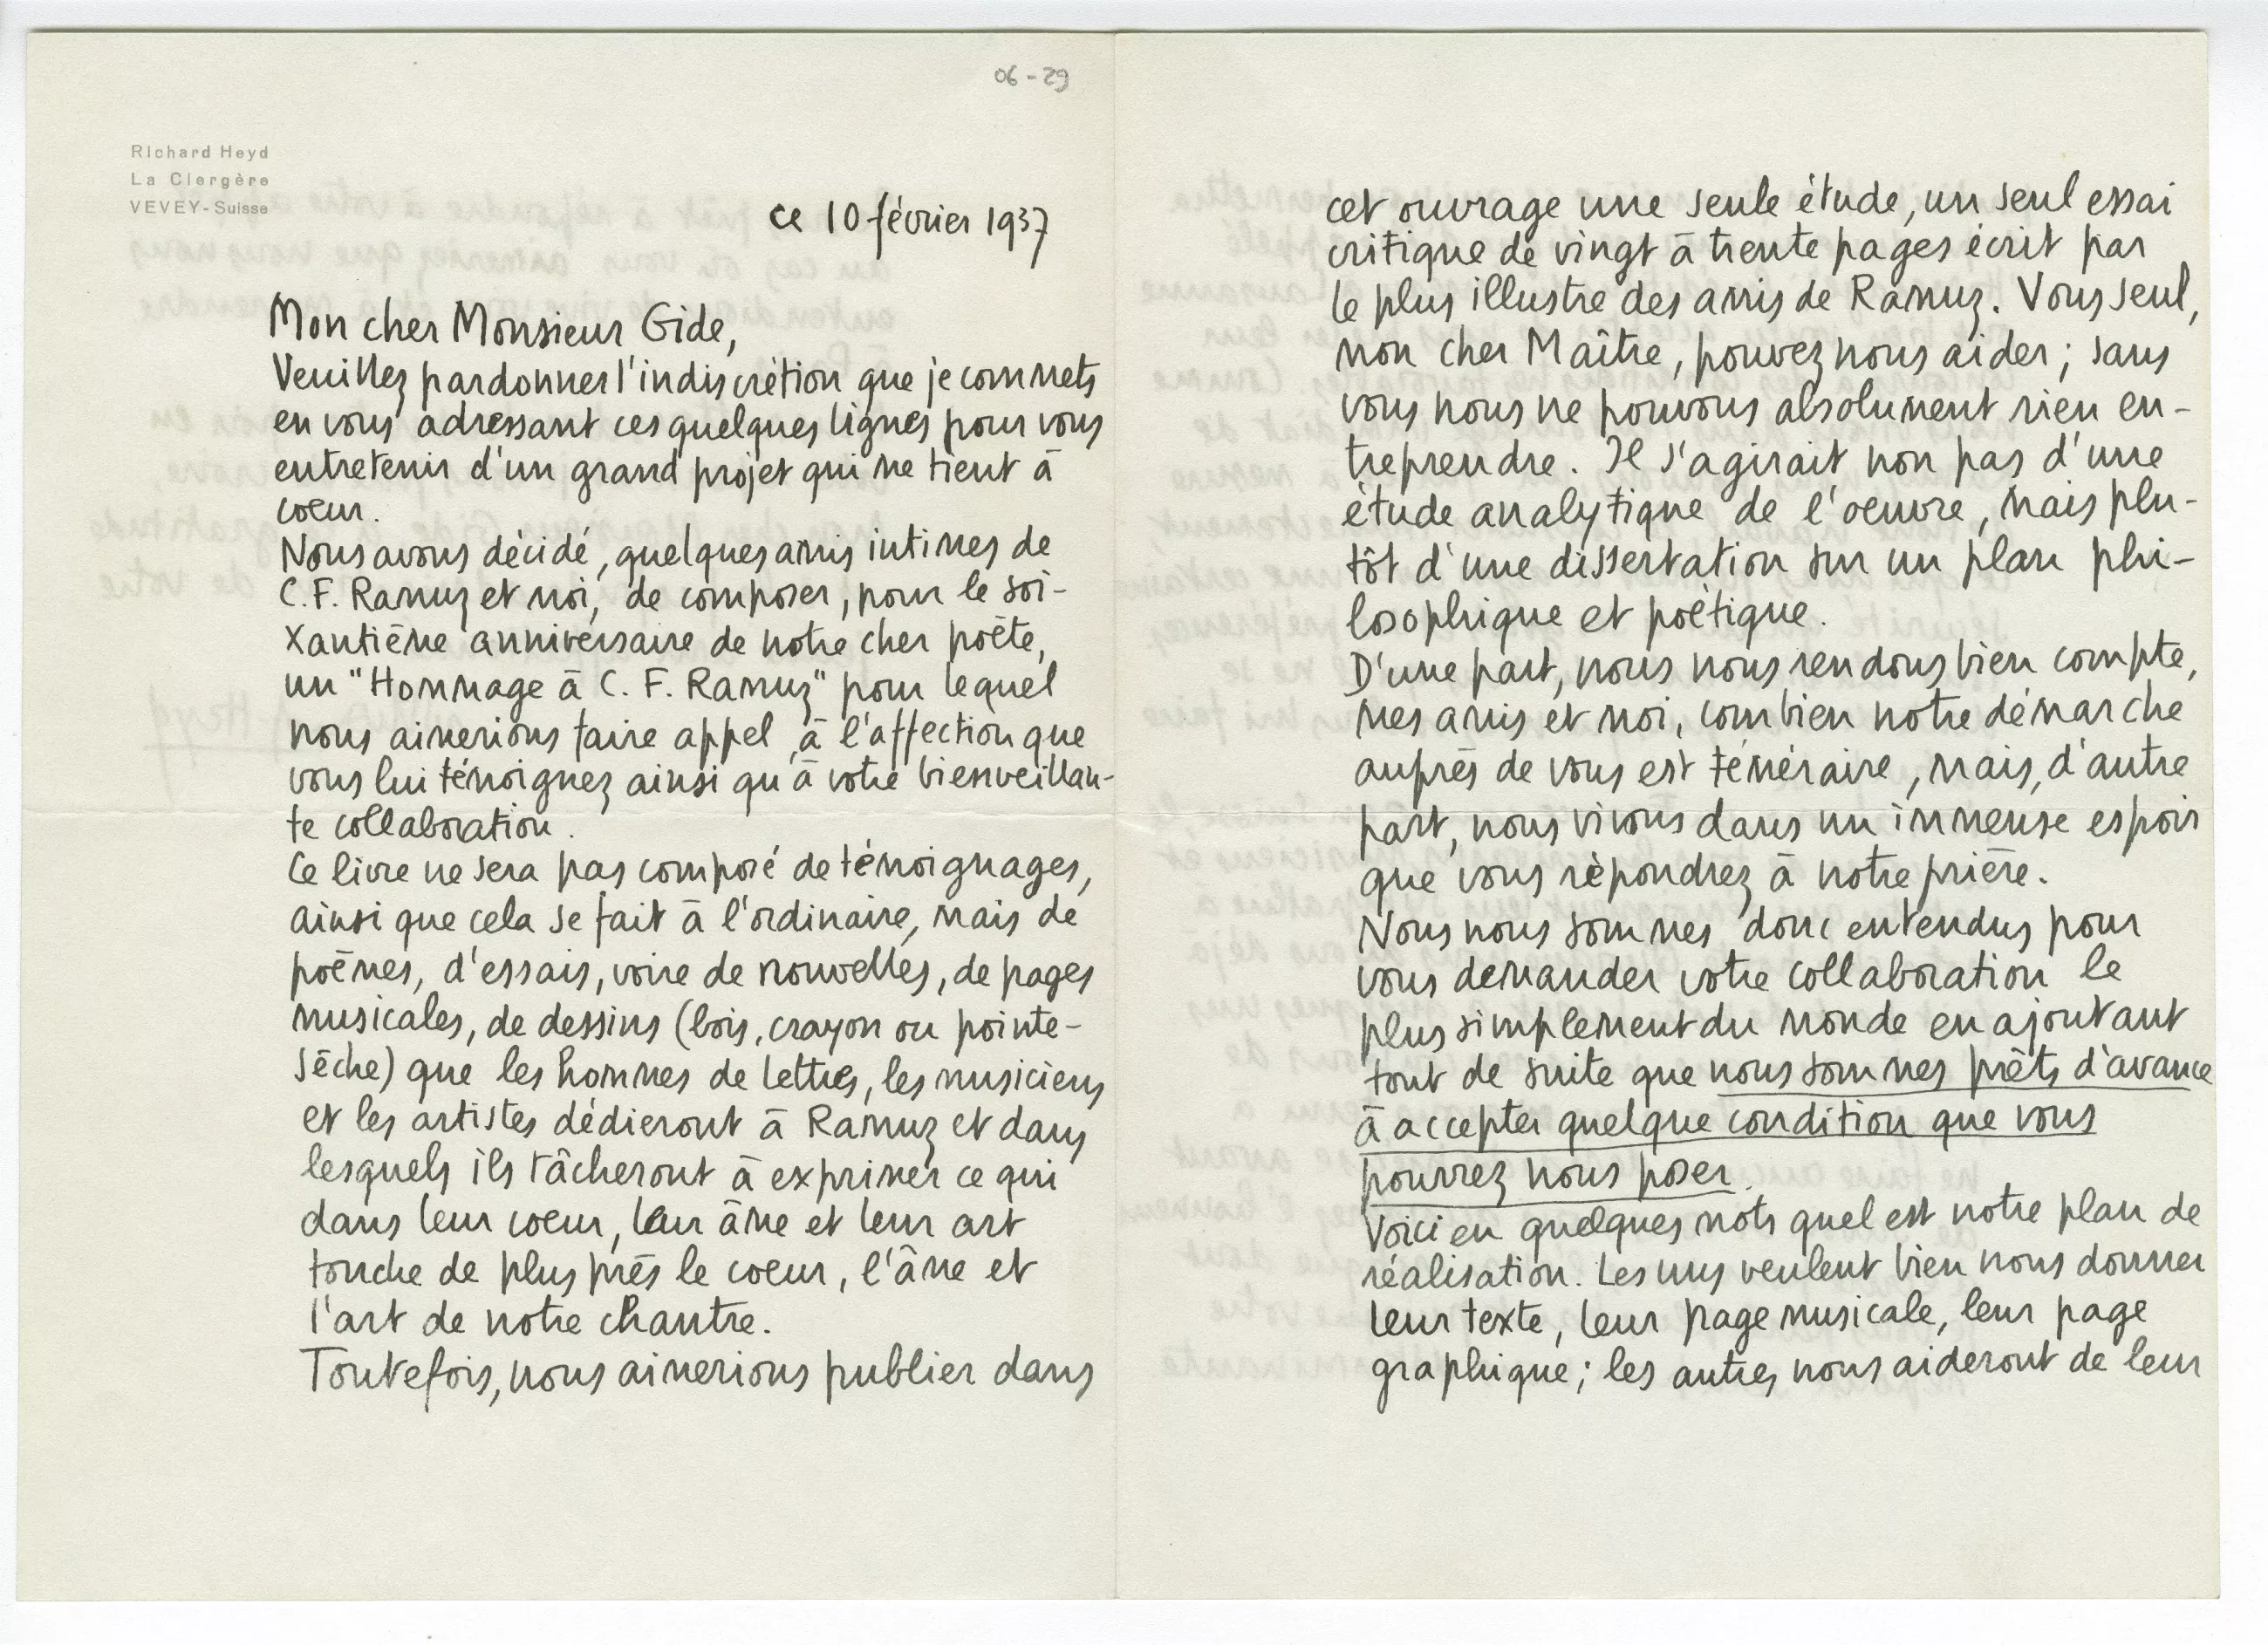 06-29
Richard Heyd
La Clergère
VEVEY-Suisse
ce 10 février 1937
Mon cher Monsieur Gide,
Veuillez pardonner l'indiscrétion que je commets
en vous adressant ces quelques lignes pour vous
entretenir d'un grand projet qui me tient à
coeur.
Nous avons décidé, quelques amis intimes de
C.F. Ramuz et moi, de composer, pour le soi-
xantième anniversaire de notre cher poète,
un "Hommage à C. F. Ramuz" pour lequel
nous aimerions faire appel à l'affection que
vous lui témoignez ainsi qu'à votre bienveillan-
te collaboration.
Ce livre ne sera pas composé de témoignages,
ainsi que cela se fait à l'ordinaire, mais de
poèmes, d'essais, voire de nouvelles, de pages
musicales, de dessins (bois, crayon ou pointe-
sèche) que les hommes de lettres, les musiciens
et les artistes dédieront à Ramuz et dans
lesquels ils tâcheront à exprimer ce qui
dans leur coeur, leur âme et leur art
touche de plus près le coeur, l'âme et
l'art de notre chantre.
Toutefois, nous aimerions publier dans
cet ouvrage une seule étude, un seul essai
critique de vingt à trente pages écrit par
le plus illustre des amis de Ramuz. Vous seul,
mon cher Maître, pouvez nous aider; sans
vous nous ne pouvons absolument rien en-
treprendre. Il s'agirait non pas d'une
étude analytique de l'oeuvre, mais plu-
tôt d'une dissertation sur un plan phi-
losophique et poétique.
D'une part, nous nous rendons bien compte,
mes amis et moi, combien notre démarche
auprès de vous est téméraire, mais, d'autre
part, nous vivons dans un immense espoir
que vous répondrez à notre prière.
Nous nous sommes donc entendus pour
vous demander votre collaboration le
plus simplement du monde en ajoutant
tout de suite que nous sommes prêts d'avance
à accepter quelque condition que vous
pourrez nous poser.
Voici en quelques mots quel est notre plan de
réalisation. Les uns veulent bien nous donner
leur texte, leur page musicale, leur page
graphique; les autres nous aideront de leur